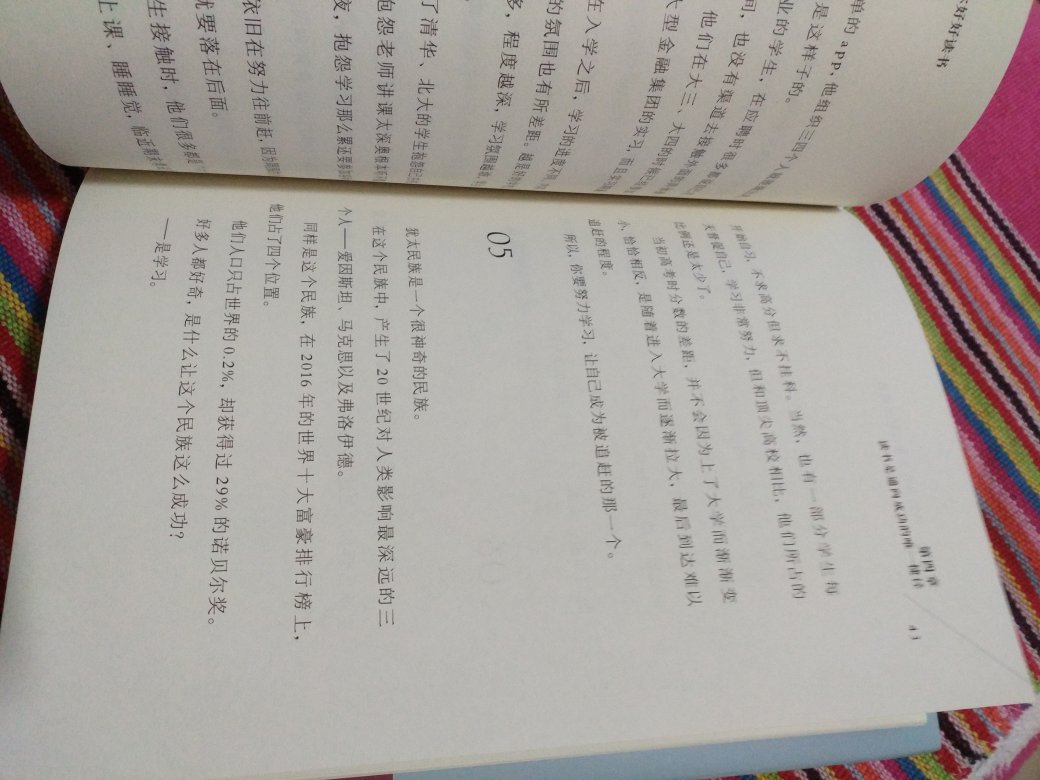 好好读书
单的app，他组织三四个人
是这样子的。
业的学生，在应聘时很多都
间，也没有渠道去接触外面的
他们在大三、大四的时候已
大型金融集团的实习，而且
在入学之后，学习的进度不
的氛围也有所差距。越是好
多，程度越深，学习氛围越
了清华、北大的学生抱怨自己
抱怨老师讲课太深奥根本听
夜，抱怨学习那么累还要参加
依旧在努力往前赶，因为
就要落在后面。
生接触时，他们很多都是
上课、睡睡觉，临近期末
第四章
读书是通向成功的唯一捷径
43
开始自习，不求高分但求不挂科。当然，也有一部分学生每
天督促自己，学习非常努力，但和顶尖高校相比，他们所占的
比例还是太少了。
当初高考时分数的差距，并不会因为上了大学而渐渐变
小，恰恰相反，是随着进入大学而逐渐拉大，最后到达难以
追赶的程度。
所以，你要努力学习，让自己成为被追赶的那一个。
05
犹太民族是一个很神奇的民族。
在这个民族中，产生了20世纪对人类影响最深远的三
个人——爱因斯坦、马克思以及弗洛伊德。
同样是这个民族，在2016年的世界十大富豪排行榜上，
他们占了四个位置。
他们人口只占世界的0.2%，却获得过29%的诺贝尔奖。
好多人都好奇，是什么让这个民族这么成功？
——是学习。